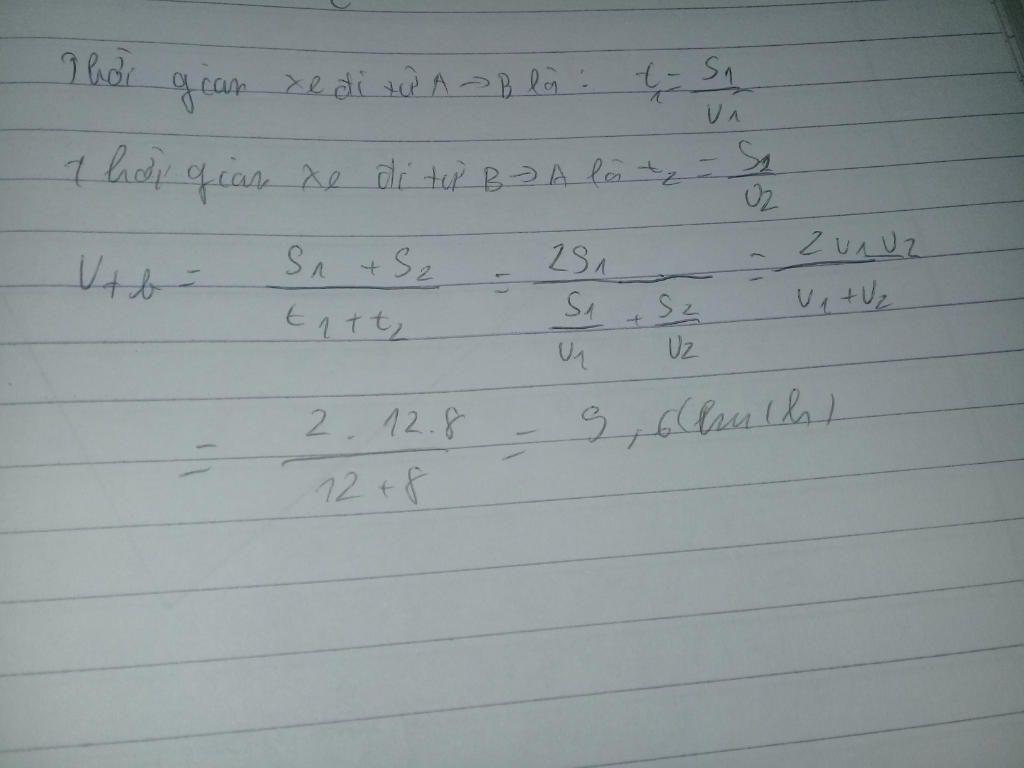 Thời gian xe đi từ A → B là: t₁ = S₁/v₁
Thời gian xe đi từ B → A là t₂ = S₂/v₂
Vtb = (S₁ + S₂)/(t₁ + t₂) = 2S₁/(S₁/v₁ + S₂/v₂) = 2v₁v₂/(v₁ + v₂)
= (2 . 12 . 8)/(12 + 8) = 9,6 (km/h)